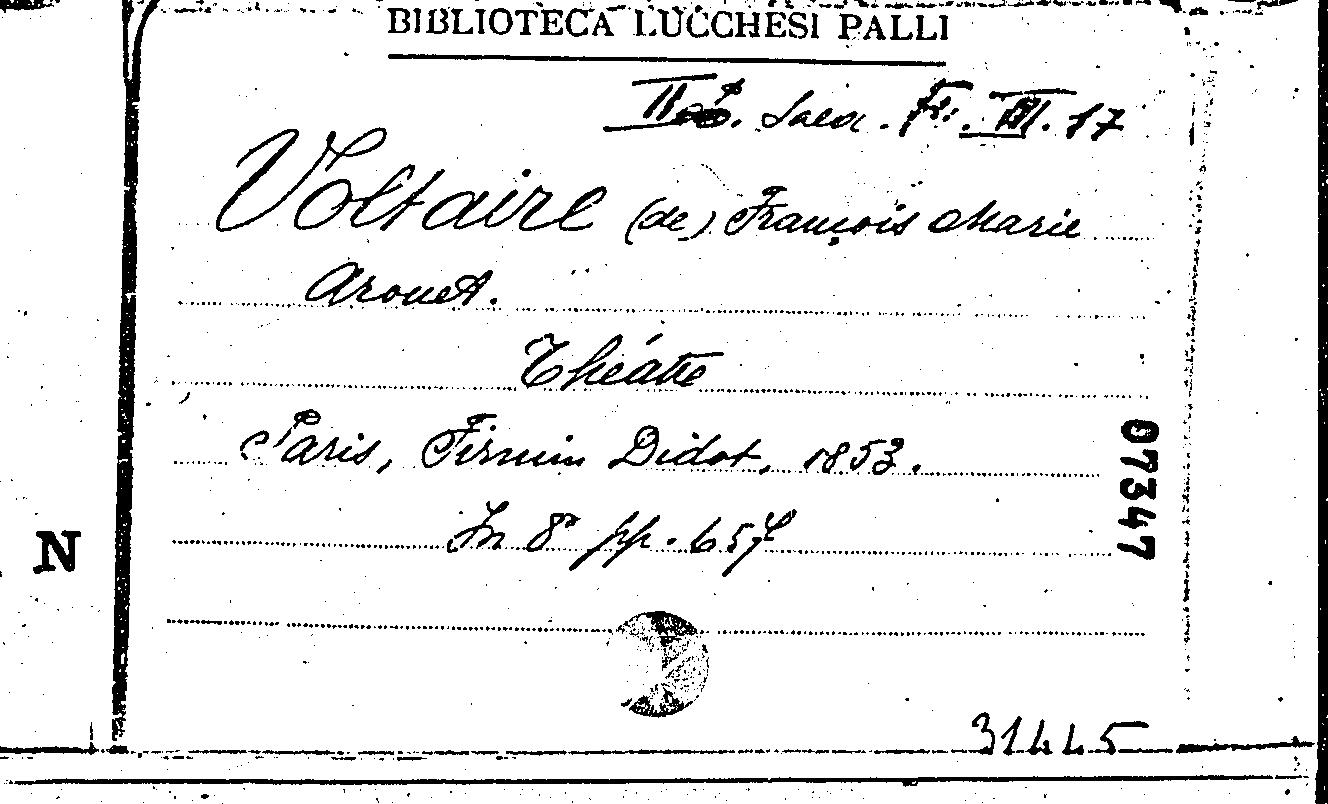 BIBLIOTECA LUCCHESI PALLI
II Sala. Fr. VII. 17
Voltaire (de) François Marie
Arouet.
Théatre
Paris, Firmin Didot, 1853.
In 8° pp. 657
07347
N
31445